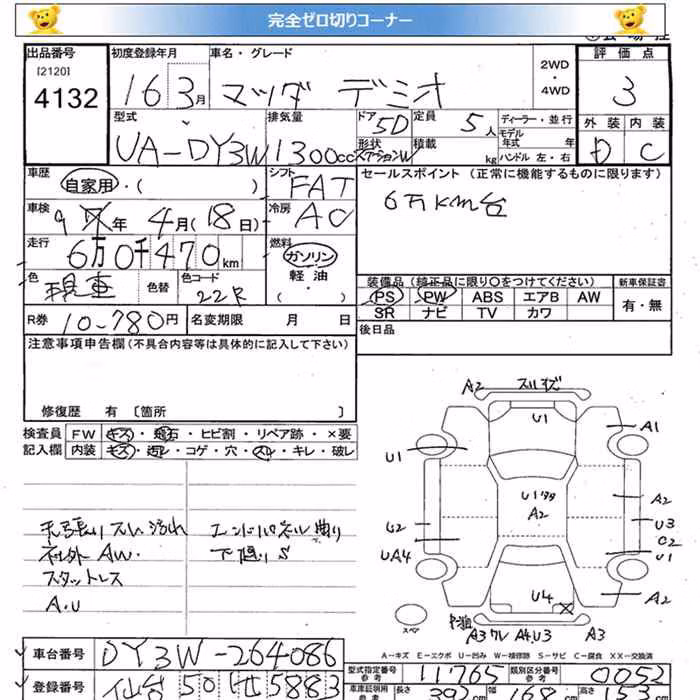 完全ゼロ切りコーナー
出品番号 初度登録年月 車名・グレード 2WD ・ 4WD 評価点
[2120]
4132 16 3月 マツダ デミオ 3
型式 排気量 ドア 5D 定員 5人 ディーラー・並行 外装 内装
UA-DY3W 1300cc 形状 積載 kg モデル年式 年 ハンドル 左・右 D C
車歴 自家用・( ) シフト FAT セールスポイント (正常に機能するものに限ります)
車検 9 年 4月(18日) 冷房 AC 6万km台
走行 6万0千470km 燃料 ガソリン 軽油 ( ・ )
色 色替 色コード 22R 装備品 (純正品に限り〇をつけてください) 新車保証書
PS PW ABS エアB AW 有・無
SR ナビ TV カワ
R券 10-780円 名変期限 月 日 後日品
注意事項申告欄 (不具合内容等は具体的に記入して下さい)
修復歴 有 [箇所 ]
検査員 FW キズ・飛石・ヒビ割・リペア跡・×要
記入欄 内装 キズ・汚レ・コゲ・穴・スレ・キレ・破レ
天張りスレ汚れ エンドパネル曲り
社外AW. 下廻りS
スタットレス
A.U
A2 スリキズ
U1 A1
U1
U1ワタ A2 A2
U2 U3
C2
UA4 U1
U4 A2
スペア A3 ワレ A4 U3 A3
A-キズ E-エクボ U-凹み W-補修跡 S-サビ C-腐食 XX-交換済
車台番号 DY3W-264086
型式指定番号 参考 11765 類別区分番号 参考 0052
登録番号 仙台 501 5883
車庫証明用 参考 長さ 392cm 幅 168cm 高さ 153